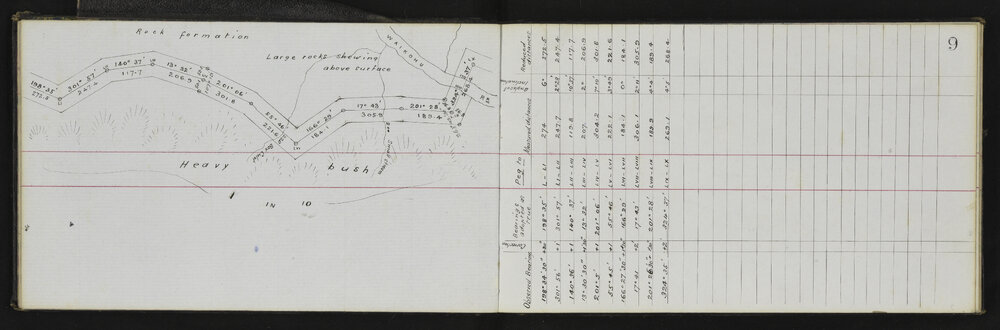 Rock formation
Large rocks showing
above surface
WAIKOHU
198° 35'
272.5
301° 57'
247.4
140° 37'
117.7
13° 32'
206.9
201° 06'
301.8
55° 46'
221.6
166° 29'
184.1
17° 43'
305.9
201° 28'
189.4
Heavy bush
9
Observed Bearing Correction Bearings adopted as true Peg to Measured distance Angle of Inclination Reduced distances
198° 34' 30" +30" 198° 35' L - LI 274. 6° 272.5
301° 56' +1 301° 57' LI - LII 247.7 2°28' 247.4
140° 36' +1 140° 37' LII - LIII 119.8 117.7
13° 30' 30" 13° 32' LIII - LIV 207. 2° 206.9
201° 5' +1 201° 06' LIV - LV 304.2 301.8
55° 45' +1 55° 46' LV - LVI 222.1 221.6
166° 27' 30" 166° 29' LVI - LVII 184.1 0° 184.1
17° 41 +2' 17° 43' LVII - LVIII 306.1 305.9
201° 28' LVIII - LIX 189.9 189.4
324° 35' +2' 324° 37' LIX - LX 269.1 268.4